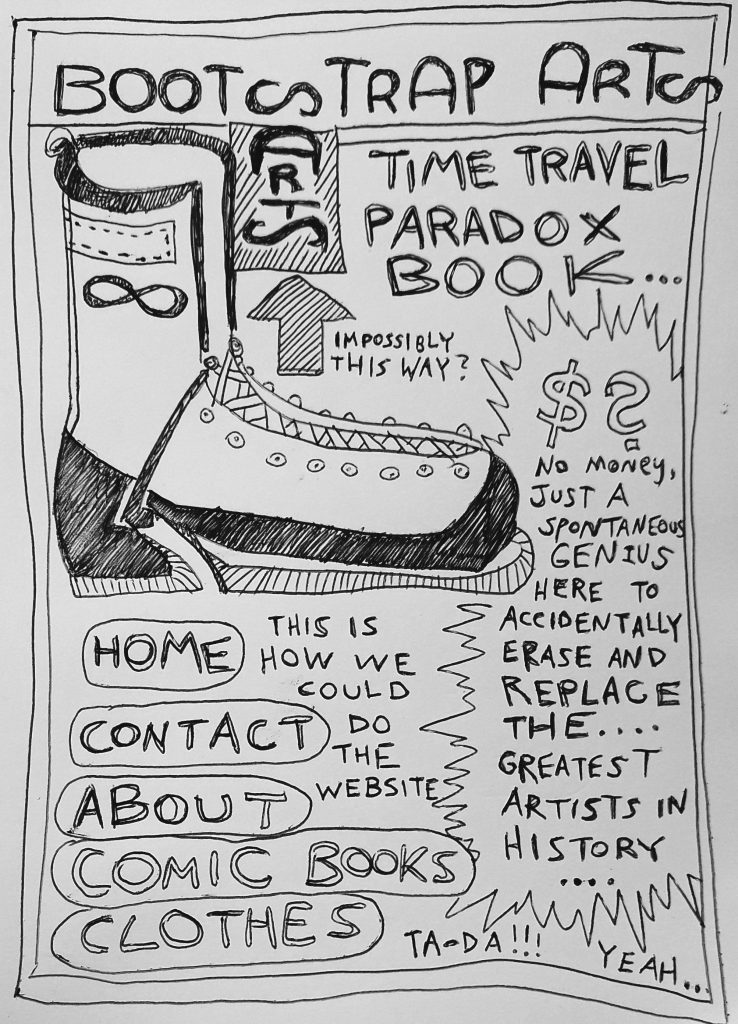 BOOTSTRAP ARTS
ARTS
TIME TRAVEL
PARADOX
BOOK...
IMPOSSIBLY
THIS WAY?
$?
NO MONEY,
JUST A
SPONTANEOUS
GENIUS
HERE TO
ACCIDENTALLY
ERASE AND
REPLACE
THE....
GREATEST
ARTISTS IN
HISTORY
....
HOME
CONTACT
ABOUT
COMIC BOOKS
CLOTHES
THIS IS
HOW WE
COULD
DO
THE
WEBSITE
TA-DA!!!
YEAH...